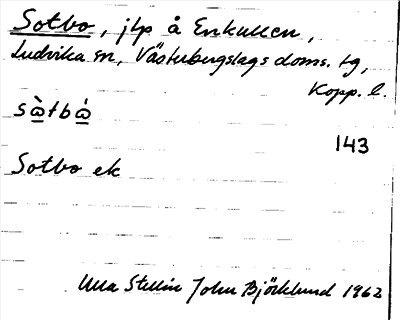 Sotbo, jlp å Enkullen,
Ludvika sn, Västerbergslags doms. tg,
Kopp. l.
sὼ̠tbώ̠
143
Sotbo ek
Ulla Stellin John Björklund 1962